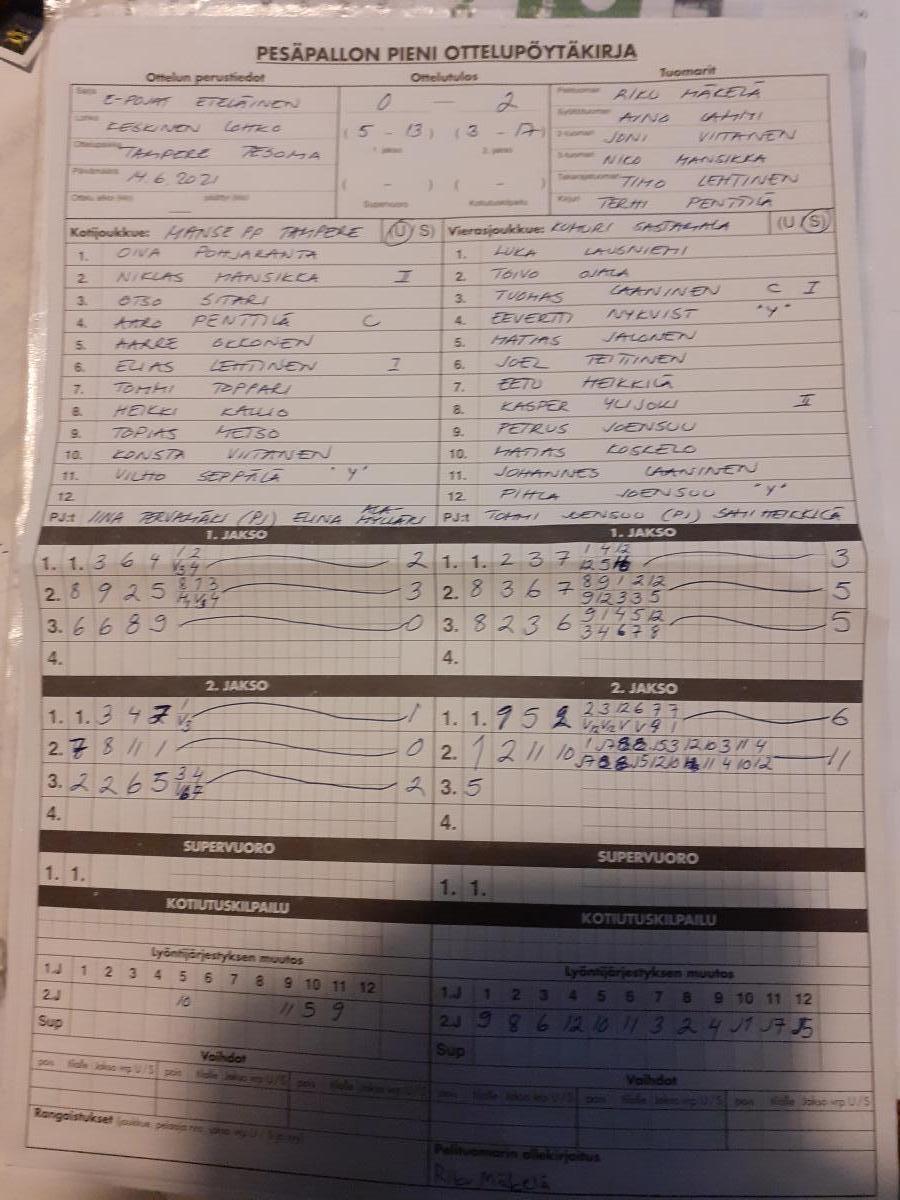 PESÄPALLON PIENI OTTELUPÖYTÄKIRJA
Ottelun perustiedot Ottelutulos Tuomarit
Sarja E-POJAT ETELÄINEN 0 — 2 Pelituomari RIKU MÄKELÄ
Lohko KESKINEN LOHKO (5 - 13) (3 - 17) Syöttötuomari AINO LAMMI
1. jakso 2. jakso 2-tuomari JONI VIITANEN
TAMPERE TESOMA 3-tuomari NIKO MANSIKKA
Päivämäärä 14.6.2021 ( - ) ( - ) Takarajatuomari TIMO LEHTINEN
Supervuoro Kotiutuskilpailu Kirjuri TERHI PENTTILÄ
Kotijoukkue: MANSE PP TAMPERE (U/S) Vierasjoukkue: KUHURI SASTAMALA (U/S)
1. OIVA POHJARANTA 1. LUKA LAUSNIEMI
2. NIKLAS MANSIKKA II 2. TOIVO OJALA
3. OTSO SITARI 3. TUOMAS LAANINEN C I
4. AARO PENTTILÄ C 4. EEVERTTI NYKVIST "Y"
5. AARRE OKKONEN 5. MATIAS JALONEN
6. ELIAS LEHTINEN I 6. JOEL TEITTINEN
7. TOMMI TOPPARI 7. EETU HEIKKILÄ
8. HEIKKI KALLIO 8. KASPER YLIJOKI II
9. TOPIAS METSO 9. PETRUS JOENSUU
10. KONSTA VIITANEN 10. MATIAS KOSKELO
11. VILHO SEPPÄLÄ "Y" 11. JOHANNES LAANINEN
12. 12. PIHLA JOENSUU "Y"
PJ:t IINA TERVAMÄKI (PJ) ELINA ALA-MYLLÄRI PJ:t TOMMI JOENSUU (PJ) SAMI HEIKKILÄ
1. JAKSO 1. JAKSO
1. 1. 3 6 4 1 2 2 1. 1. 2 3 7 1 4 12 3
2. 8 9 2 5 8 7 3 3 2. 8 3 6 7 8 9 1 2 12 5
9 12 3 3 5
3. 6 6 8 9 0 3. 8 2 3 6 9 1 4 5 12 5
3 4 6 7 8
4. 4.
2. JAKSO 2. JAKSO
1. 1. 3 4 7 1 1 1. 1. 9 5 2 2 3 12 6 7 7 6
2. 7 8 11 1 0 2. 1 2 11 10 11
3. 2 2 6 5 3 4 2 3. 5
4. 4.
SUPERVUORO SUPERVUORO
1. 1. 1. 1.
KOTIUTUSKILPAILU KOTIUTUSKILPAILU
Lyöntijärjestyksen muutos Lyöntijärjestyksen muutos
1.J 1 2 3 4 5 6 7 8 9 10 11 12 1.J 1 2 3 4 5 6 7 8 9 10 11 12
2.J 10 11 5 9 2.J 9 8 6 12 10 11 3 2 4 J1 J7 J5
Sup Sup
Vaihdot Vaihdot
pois tilalle Jakso vrp U/S pois tilalle Jakso vrp U/S pois tilalle Jakso vrp U/S pois tilalle Jakso vrp U/S pois tilalle Jakso vrp U/S pois tilalle Jakso vrp U/S
Rangaistukset
Pelituomarin allekirjoitus
Riku Mäkelä